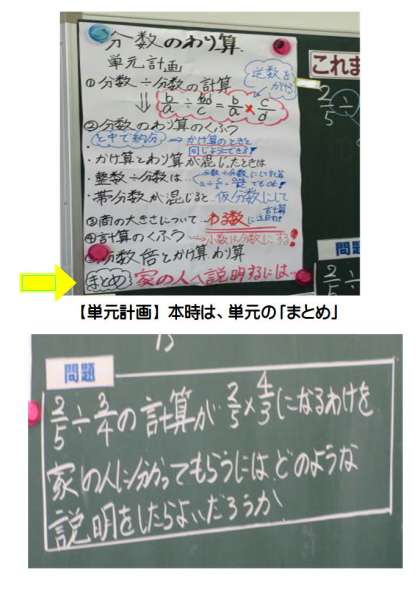 分数のわり算
単元計画
逆数を
かける
①分数÷分数の計算
b/a ÷ d/c = b/a × c/d
②分数のわり算のくふう
途中で約分 → かけ算のときと
同じようにできる!
・かけ算とわり算が混じったときは
・整数÷分数は
・帯分数が混じると→仮分数にして
計算
③商の大きさについて わる数に
④計算のくふう → 小数は分数に
⑤分数倍とかけ算わり算
まとめ 家の人へ説明するには
これま
2/5 ÷
問題
【単元計画】 本時は、単元の「まとめ」
問題
2/5÷3/4の計算が2/5×4/3になるわけを
家の人に分かってもらうには、どのような
説明をしたらよいだろうか